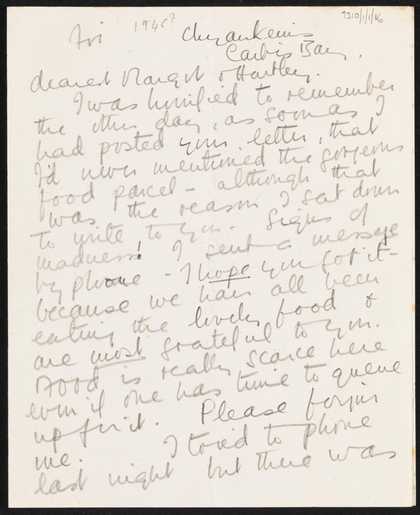 7210/1/1/16
194(?)
Fri Chyankerris
Carbis Bay.
dearest Margot & Hartley.
I was horrified to remember
the other day, as soon as I
had posted your letter, that
I'd never mentioned the gorgeous
food parcel – although that
was the reason I sat down
to write to you. Signs of
madness! I sent a message
by phone – I hope you got it –
because we have all been
eating the lovely food &
are most grateful to you.
Food is really scarce here
even if one has time to queue
up for it. Please forgive
me. I tried to phone
last night but there was